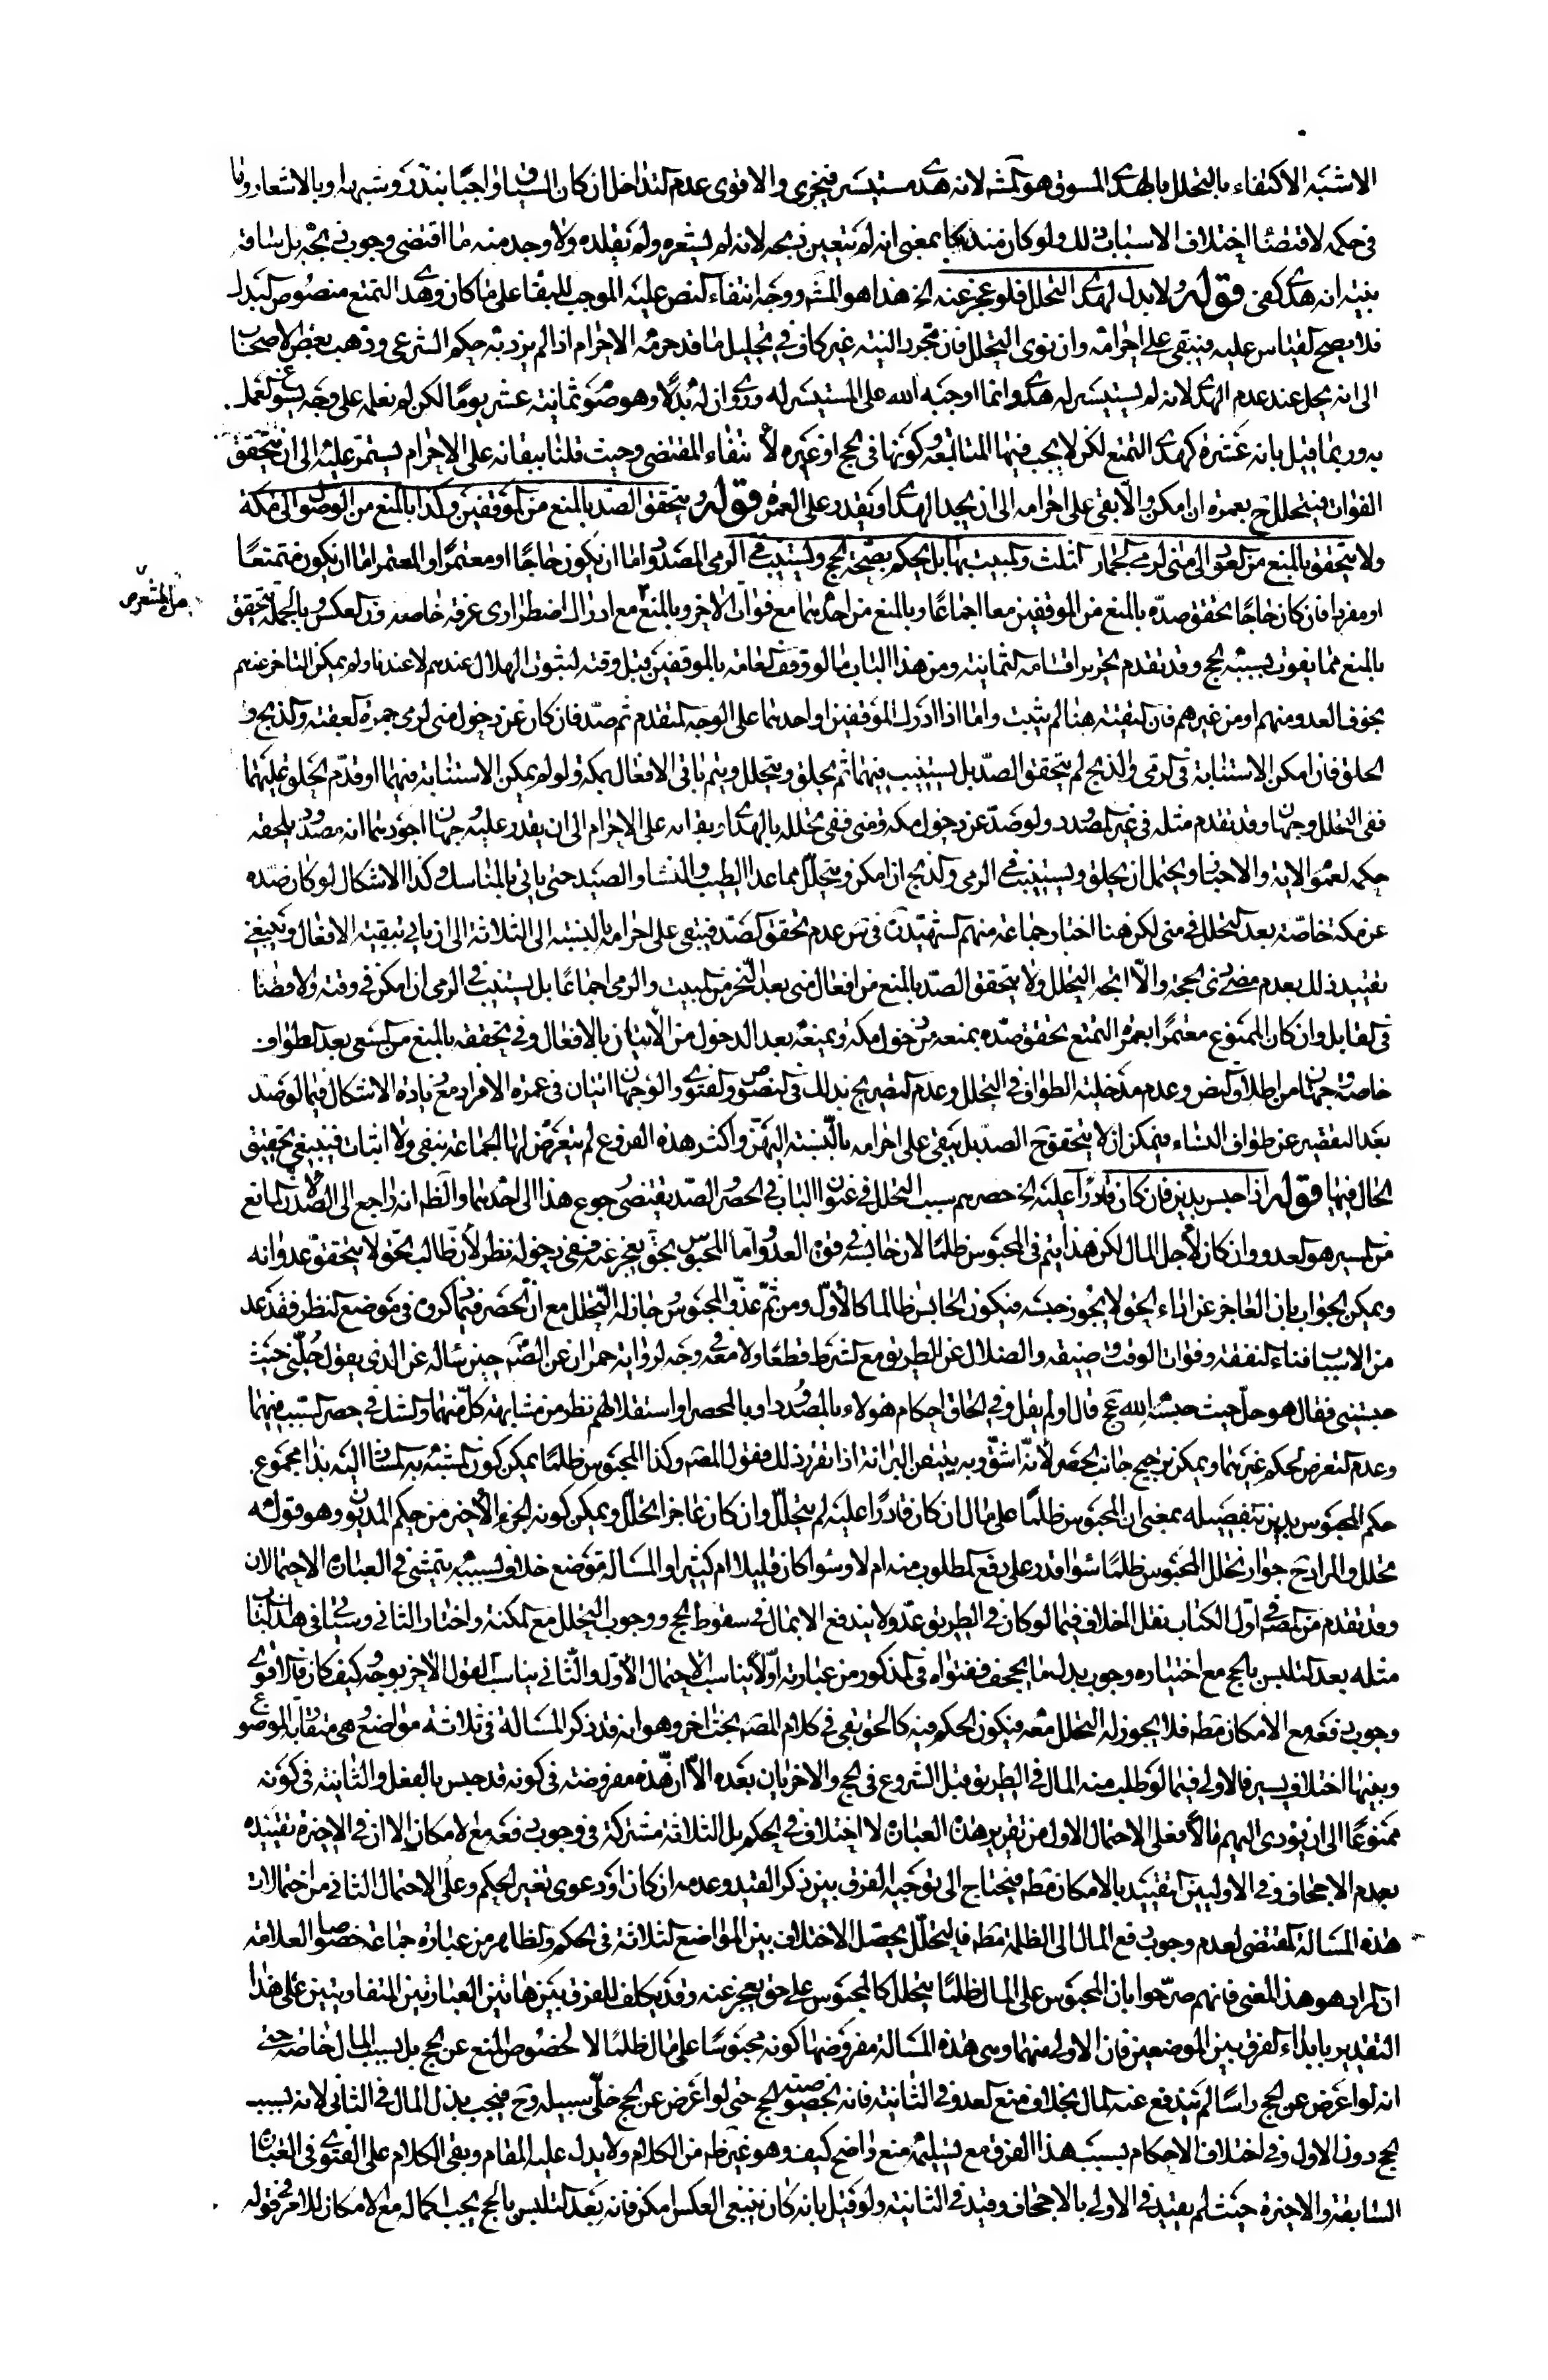 الاشبه الاكتفاء بالتحلل بالهدى المسوق هو المشهور لانه هدى مستيسر فيجزى والاقوى عدم التداخل ان كان السياق واجبا بنذر وشبهه او بالاشعار وما
فى حكمه لاقتضاء اختلاف الاسباب ذلك ولو كان مندوبا بمعنى انه لم يتعين ذبحه لانه لم يشعره ولم يقلده ولا وجد منه ما اقتضى وجوب ذبحه بل ساقه
بنيته انه هدى كفى قوله ولا بدل لهدى التحلل فلو عجز عنه الخ هذا هو المشه ووجه انتفاء النص عليه الموجب للبقاء على ما كان وهدى التمتع منصوص البدل
فلا يصح القياس عليه فيبقى على احرامه وان نوى التحلل فان مجرد النية غير كاف فى تحليل ما قد حرمه الاحرام اذا لم يرد به حكم الشرعى وذهب بعض الاصحاب
الى انه يحل عند عدم الهدى لانه لم يستيسر له هدى وانما اوجبه الله على المستيسر له وروى ان له بدلا وهو صوم ثمانية عشر يوما لكن لم نعلمه على وجه يسوغ العمل
به وربما قيل بانه عشرة كهدى التمتع لكن لا يجب فيها المتابعة وكونها فى الحج او غيره لانتفاء المقتضى وحيث قلنا ببقائه على الاحرام يستمر عليه الى ان يتحقق
الفوات فيتحلل ح بعمرة ان امكن والا بقى على احرامه الى ان يجد الهدى او يقدر على العمرة قوله ويتحقق الصد بالمنع من الموقفين وكذا بالمنع من الوصول الى مكة
ولا يتحقق بالمنع من العود الى منى لرمى الجمار الثلث والمبيت بها بل يحكم بصحة الحج ويستنيب فى الرمى المصدود اما ان يكون حاجا او معتمرا والمعتمر اما ان يكون متمتعا
او مفردا فان كان حاجا تحقق صده بالمنع من الموقفين معا اجماعا وبالمنع من احدهما مع فوات الاخر وبالمنع مع ادراك اضطرارى عرفة خاصة دون العكس وبالجملة يتحقق
من المشعر ص
بالمنع مما يفوت بسببه الحج وقد تقدم تحرير اقسامه الثمانية ومن هذا الباب ما لو وقف العامة بالموقفين قبل وقته لثبوت الهلال عندهم لا عندنا ولم يمكن التاخر عنهم
لخوف العدو منهم او من غيرهم فان التقية هنا لم يثبت واما اذا ادرك الموقفين او احدهما على الوجه المتقدم ثم صد فان كان عن دخول منى لرمى جمرة العقبة والذبح و
الحلق فان امكن الاستنابة فى الرمى والذبح لم يتحقق الصد بل يستنيب فيهما ثم يحلق ويتحلل ويتم باقى الافعال بمكة ولو لم يمكن الاستنابة فيهما او قدم الحلق عليهما
ففى التحلل وجهان وقد تقدم مثله فى غير المصدود ولو صد عن دخول مكة ومنى ففى تحلله بالهدى او بقائه على الاحرام الى ان يقدر عليه وجهان اجودهما انه مصدود يلحقه
حكمه لعموم الاية والاخبار ويحتمل ان يحلق ويستنيب فى الرمى والذبح ان امكن ويتحلل مما عدا الطيب والنساء والصيد حتى ياتى بالمناسك وكذا الاشكال لو كان صده
عن مكة خاصة بعد التحلل فى منى لكن هنا اختار جماعة منهم الشهيد فى س عدم تحقق الصد فيبقى على احرامه بالنسبة الى الثلاثة الى ان ياتى ببقية الافعال وينبغى
تقييد ذلك بعدم مضى ذى الحجة والا اتجه التحلل ولا يتحقق الصد بالمنع من افعال منى بعد النحر من المبيت والرمى اجماعا بل يستنيب فى الرمى ان امكن فى وقته والا قضاه
فى القابل وان كان الممنوع معتمرا بعمرة التمتع تحقق صده بمنعه من دخول مكة وبمنعه بعد الدخول من الاتيان بالافعال وفى تحققه بالمنع من السعى بعد الطواف
خاصة وجهان من اطلاق النص وعدم مدخلية الطواف فى التحلل وعدم التصريح بذلك فى النصوص والفتوى والوجهان اتيان فى عمرة الافراد مع زيادة الاشكال فيما لو صد
بعد التقصير عن طواف النساء فيمكن ان لا يتحقق ح الصد بل يبقى على احرامه بالنسبة اليهن واكثر هذه الفروع لم يتعرض لها الجماعة بنفى ولا اثبات فينبغى تحقيق
الحال فيها قوله اذا حبس بدين فان كان قادرا عليه الخ حصرهم سبب التحلل فى عنوان الباب فى الحصر والصد يقتضى رجوع هذا الى احدهما والظ انه راجع الى الصد لان المانع
من المسير هو العدو وان كان لاجل المال لكن هذا يتم فى المحبوس ظلما لان حابسه فى قوة العدو واما المحبوس بحق يعجز عنه ففى دخوله نظر لان طالب الحق لا يتحقق عدوانه
ويمكن الجواب بان العاجز عن اداء الحق لا يجوز حبسه فيكون الحابس ظالما كالاول ومن ثم عد فى المحبوس جاز له التحلل مع ان الحصر فيما ذكروه فى موضع النظر فقد عد
من الاسباب فناء النفقة وفوات الوقت وضيقه والضلال عن الطريق مع الشرط قطعا ولا معه فى وجه لرواية حمران عن الصه حين سئاله عن الذى يقول حلنى حيث
حبستنى فقال هو حل حيث حبسه الله عج قال او لم يقل وفى الحاق احكام هؤلاء بالمصدود او بالمحصر او استقلالهم نظر من مشابهته كلا منهما والشك فى حصر السبب فيهما
وعدم التعرض لحكم غيرهما ويمكن ترجيح جانب الحصر لانه اشق وبه يتيقن البرائة اذا تقرر ذلك فقول المصه وكذا المحبوس ظلما يمكن كون المشبه به المشار اليه بذا مجموع
حكم المحبوس بدين بتفصيله بمعنى ان المحبوس ظلما على مال ان كان قادرا عليه لم يتحلل وان كان عاجزا تحلل ويمكن كونه الجزء الاخير من حكم المديون وهو قوله
تحلل والمراد ح جواز تحلل المحبوس ظلما سواء قدر على دفع المطلوب منه ام لا وسواء كان قليلا ام كثيرا والمسالة موضع خلاف وبسببه يتمشى فى العبارة الاحتمالان
وقد تقدم من المصه فى اول الكتاب نقل الخلاف فيما لو كان فى الطريق عدو لا يندفع الا بمال فى سقوط الحج ووجوب التحلل مع المكنة واختار الثانى وسياتى فى هذا الباب
مثله بعد التلبس بالحج مع اختياره وجوب بذل ما لم يجحف ففتواه فى المذكور من عبارته اولا يناسب الاحتمال الاول والثانى يناسب القول الاخر بوجه وكيف كان فالاقوى
وجوب دفعه مع الامكان مطه فلا يجوز له التحلل معه فيكون الحكم فيه كالحق بقى فى كلام المصه بحث اخر وهو انه قد ذكر المسالة فى ثلاثة مواضع هى متقاربة الموضوع
وبينها اختلاف يسير فالاولى فيما لو طلب منه المال فى الطريق قبل الشروع فى الحج والاخريان بعده الا ان هذه مفروضة فى كونه قد حبس بالفعل والثانية فى كونه
ممنوعا الى ان يؤدى اليهم مالا فعلى الاحتمال الاول من تقرير هذه العبارة لا اختلاف فى الحكم بل الثلاثة مشتركة فى وجوب دفعه مع الامكان الا ان فى الاخيرة تقييده
بعدم الاجحاف وفى الاوليين التقييد بالامكان مطه فيحتاج الى توجيه الفرق بين ذكر القيد وعدمه ان كان او دعوى تغير الحكم وعلى الاحتمال الثانى من احتمالات
هذه المسالة المقتضى لعدم وجوب دفع المال الى الظلمة مطه فالتحلل يحصل الاختلاف بين المواضع الثلاثة فى الحكم والظاهر من عبارة جماعة خصوصا العلامة
ان المراد هو هذا المعنى فانهم صرحوا بان المحبوس على المال ظلما يتحلل كالمحبوس على حق يعجز عنه وقد يكلف للفرق بين هاتين العبارتين المتفاوتتين على هذا
التقدير بابداء الفرق بين الموضعين فان الاولى منهما وهى هذه المسالة مفروضها كونه محبوسا على مال ظلما لا لخصوص المنع عن الحج بل بسبب المال خاصة حتى
انه لو اعرض عن الحج راسا لم يندفع عنه المال بخلاف منع العدو فى الثانية فانه لخصوصية الحج حتى لو اعرض عن الحج خلى سبيله وح فيجب بذل المال فى الثانى لانه بسبب
الحج دون الاول وفى اختلاف الاحكام بسبب هذا الفرق مع تسليمه منع واضح كيف وهو غير ظه من الكلام ولا يدل عليه المقام وبقى الكلام على الفتوى فى العبارة
السابقة والاخيرة حيث لم يقيد فى الاولى بالاجحاف وقيد فى الثانية ولو قيل بانه كان ينبغى العكس امكن فانه بعد التلبس بالحج يجب اكماله مع الامكان للامر فى قوله